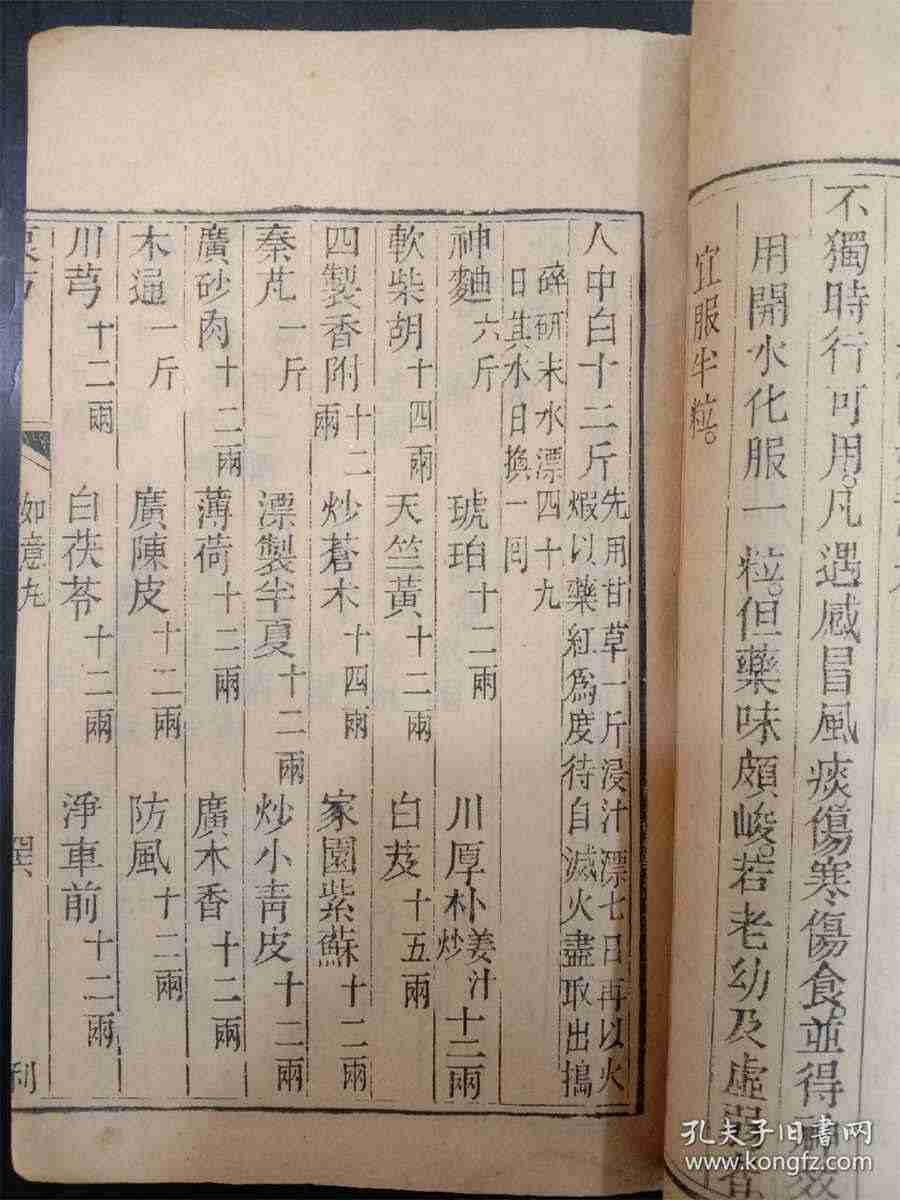 不獨時行可用。凡遇感冒風痰傷寒傷食。並得神效
用開水化服一粒。但藥味頗峻。若老幼及虛弱者
宜服半粒。
人中白十二斤 先用甘草一斤浸汁漂七日再以火
煆以藥紅爲度待自滅火盡取出搗
碎研末水漂四十九
日其水日換一囘
神麯六斤 琥珀十二兩 川厚朴姜汁炒十二兩
軟柴胡十四兩 天竺黃十二兩 白芨十五兩
四製香附十二兩 炒蒼术十四兩 家園紫蘇十二兩
秦艽一斤 漂製半夏十二兩 炒小靑皮十二兩
廣砂肉十二兩 薄荷十二兩 廣木香十二兩
木通一斤 廣陳皮十二兩 防風十二兩
川芎十二兩 白茯苓十二兩 淨車前十二兩
如意丸
利
孔夫子旧書网
www.kongfz.com